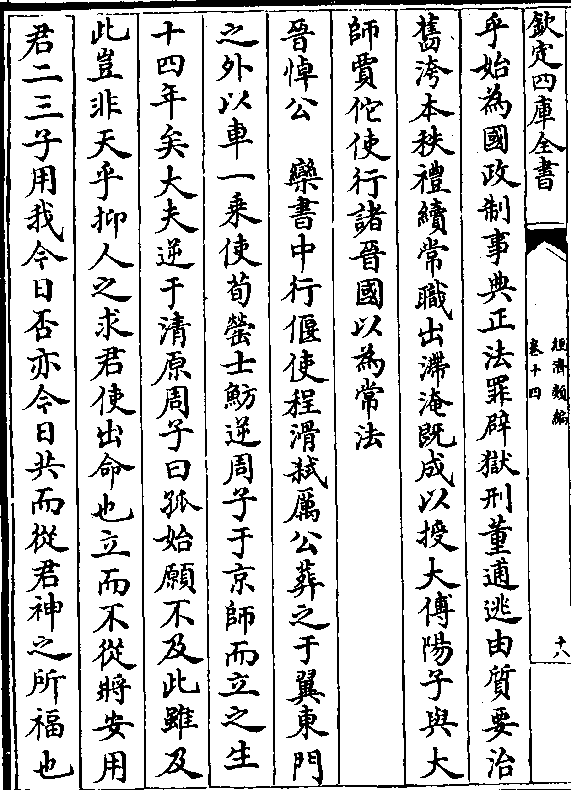 欽定四庫全書
經濟類編
卷十四
十八
乎始為國政制事典正法罪辟獄刑董逋逃由質要治
舊洿本秩禮續常職出滯淹既成以授大傅陽子與大
師賈佗使行諸晉國以為常法
晉悼公　欒書中行偃使程滑弑厲公葬之于翼東門
之外以車一乗使荀罃士魴逆周子于京師而立之生
十四年矣大夫逆于清原周子曰孤始願不及此雖及
此豈非天乎抑人之求君使出命也立而不從將安用
君二三子用我今日否亦今日共而從君神之所福也